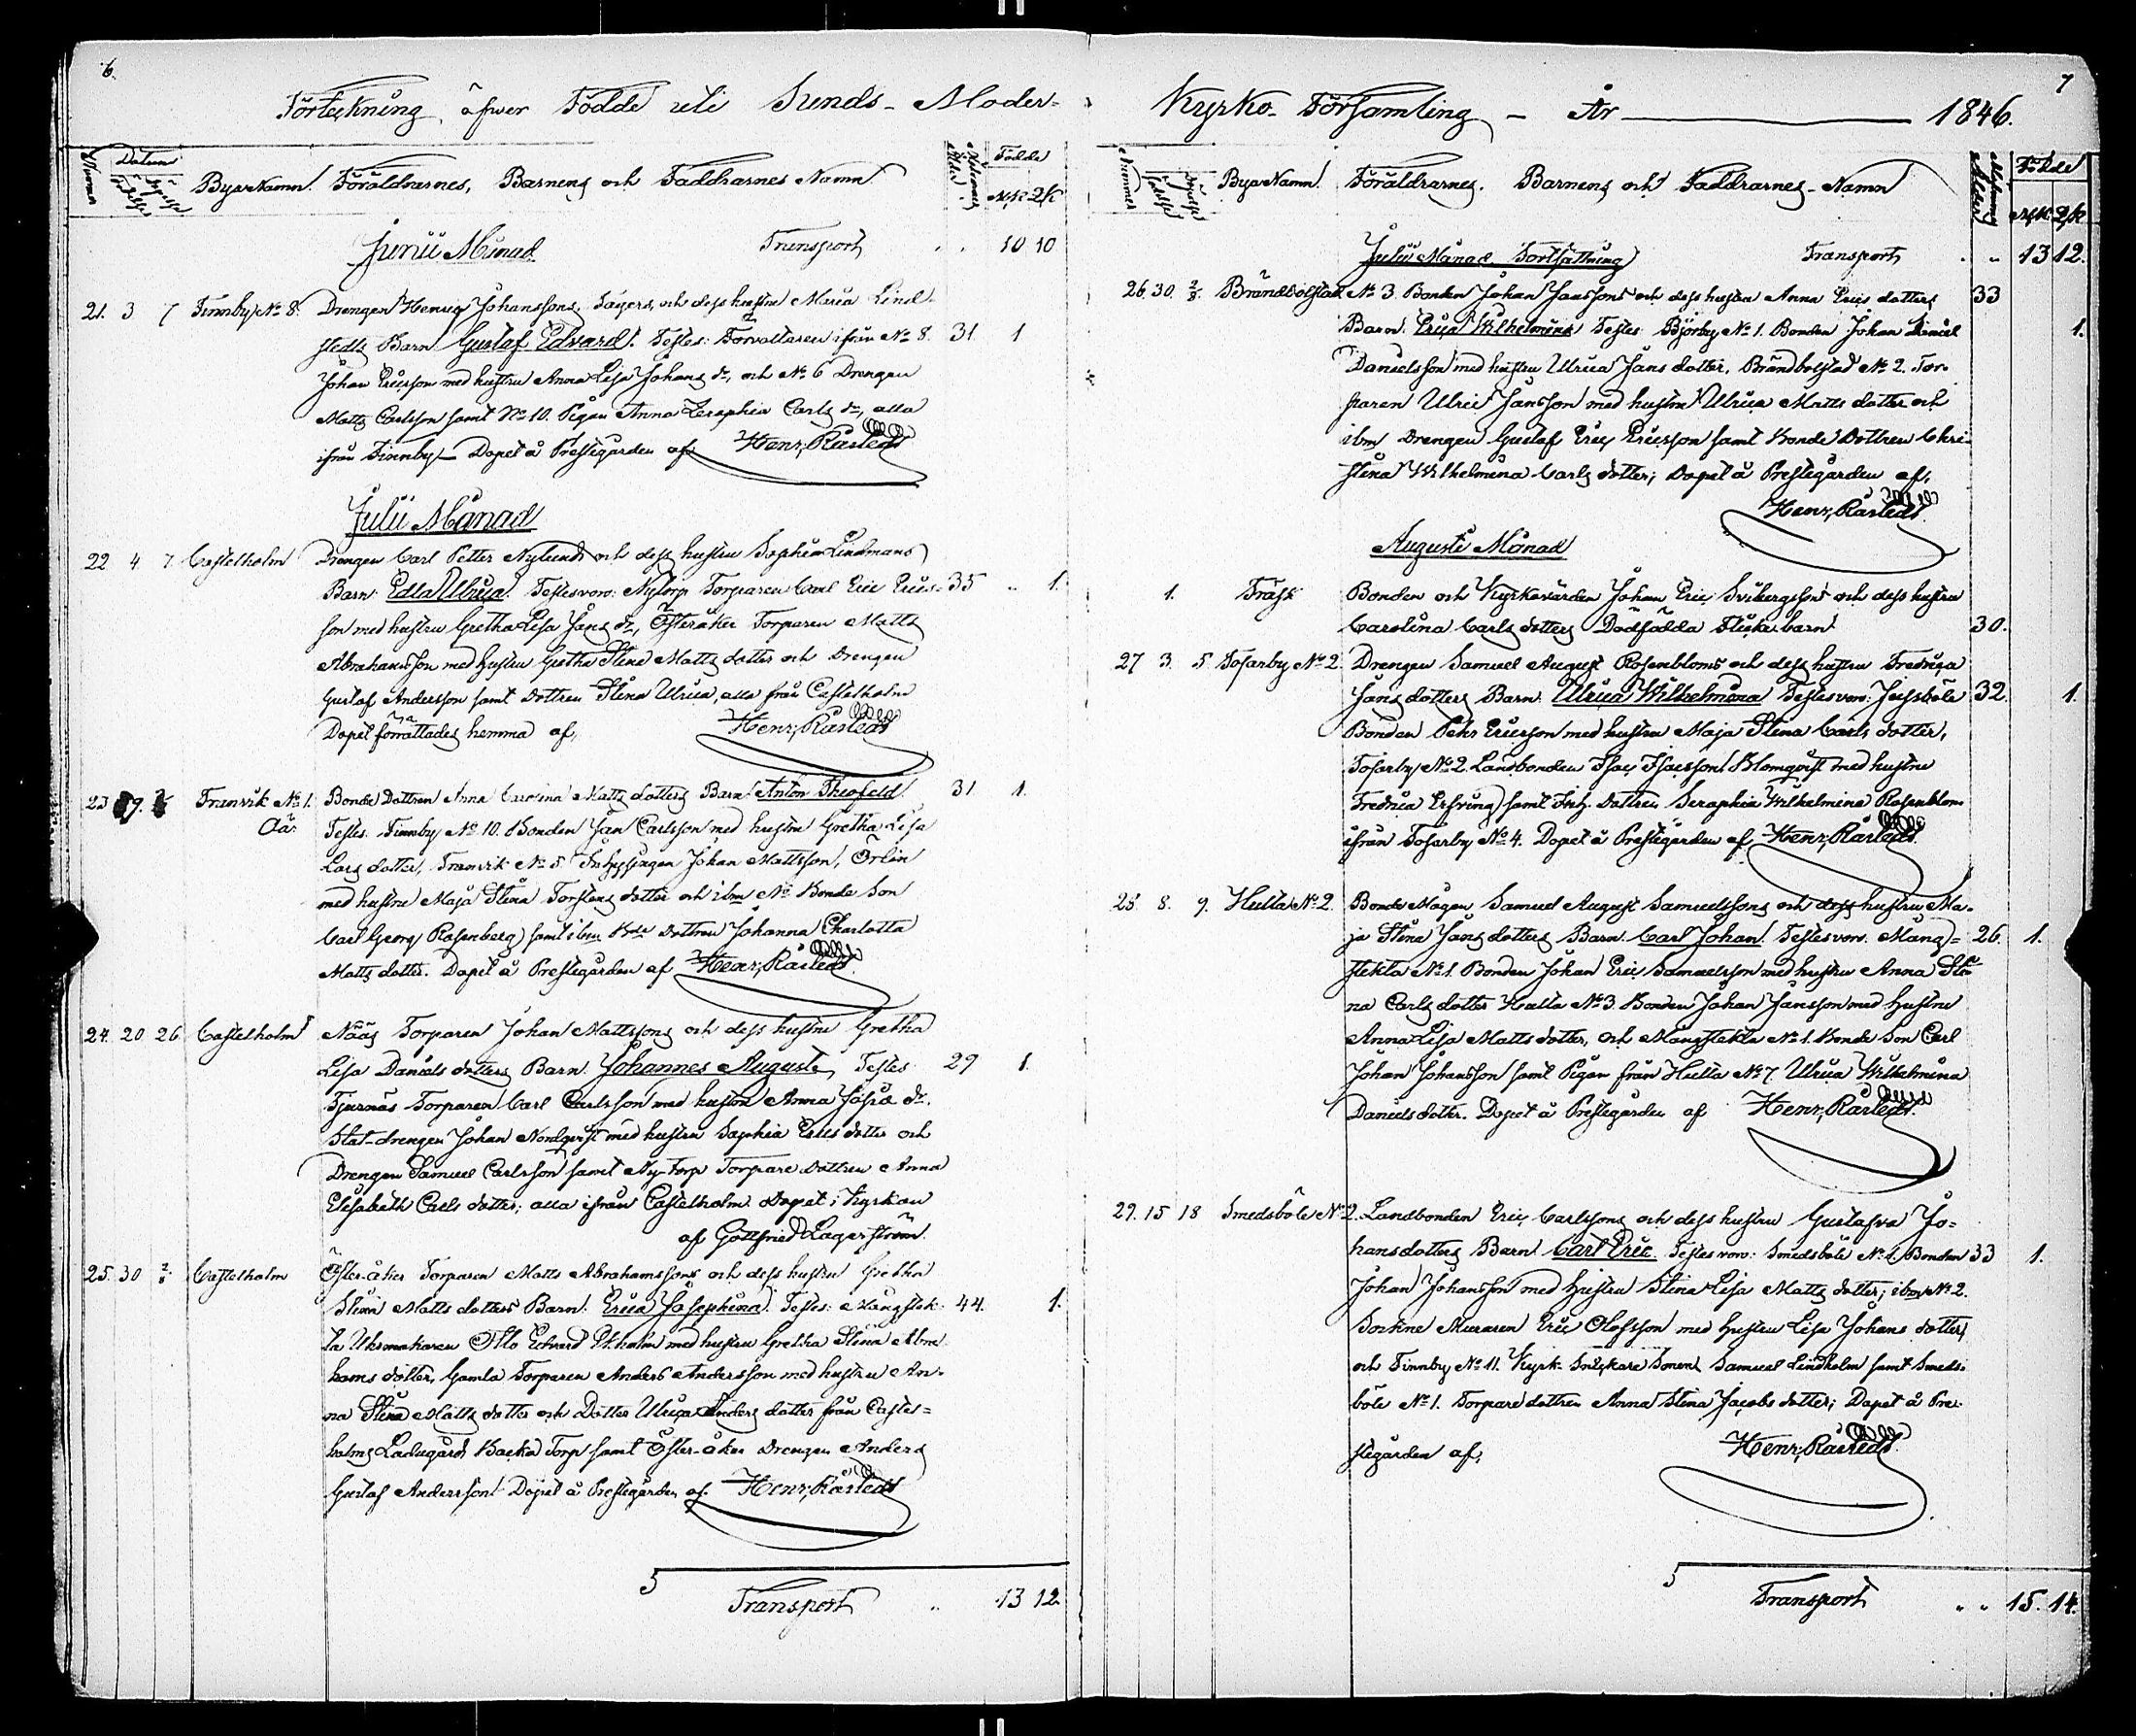 6.
Förteckning öfwer Födde uti Sunds Moder-
Nummer Datum Födelse Byars Namn. Föräldrarnes, Barnens och Faddrarnes Namn. Modrens ålder Födde
MK QK
Junii Månad Transport 10 10
21. 3 7 Finnby No 8. Drengen Henric Johanssons, Jägers, och dess hustru Maria Lind-
stedts Barn Gustaf Edvard. Testes: Förvaltaren ifrån No 8. 31 1
Johan Ericsson med hustru Anna Lisa Johans dr, och No 6 Drengen
Matts Carlsson samt No 10. Pigan Anna Seraphia Carls dr, alla
ifrån Finnby. Döpet å Prestegården af Henr. Råstedt
Julii Månad
22 4. 7. Castelholm Drengen Carl Petter Nylunds och dess hustru Sophia Lindmans
Barn: Edla Ulrica. Testes voro: Nytorp Torparen Carl Eric Erics- 35 1.
son med hustru Gretha Lisa Jans dr, Österåker Torparen Matts
Abrahamsson med Hustru Gretha Stina Matts dotter och Drengen
Gustaf Andersson samt dottren Stina Ulrica, alla från Castelholm
Döpet förrättades hemma af, Henr. Råstedt
23 9. Tranvik No 1. Bonde Dottren Anna Carolina Matts dotters Barn Anton Theofeld. 31 1.
Oä. Testes. Finnby No 10. Bonden Jan Carlsson med hustru Gretha Lisa
Lars dotter, Tranvik No 5 Inhysjagen Johan Mattsson, Örlin
med hustru Maja Stina Torstens dotter och ibm No Bonde Son
Carl Georg Rosenberg samt ibm Bde dottren Johanna Charlotta
Matts dotter. Döpet å Prestegården af Henr. Råstedt
24. 20 26 Castelholm Nääs Torparen Johan Mattssons och dess hustru Gretha
Lisa Daniels dotters Barn. Johannes August, Testes 29 1.
Tjurnäs Torparen Carl Carlsson med hustru Anna dr.
Stat-drengen Johan Nordqvist med hustru Sophia Erics dotter och
Drengen Samuel Carlsson samt Ny-Torp Torpare dottren Anna
Elisabeth Carls dotter; alla ifrån Castelholm. Döpet i Kyrkan
af Gottfried Lagerström.
25. 30 2/8 Castelholm Öster-åker Torparen Matts Abrahamssons och dess hustru Gretha
Stina Matts dotters Barn: Erica Josephina. Testes: Mångstek- 44. 1.
ta Urmakaren Otto Edvard Ekholm med hustru Gretha Stina Abra-
hams dotter, Gamla Torparen Anders Andersson med hustru An-
na Stina Matts dotter och Dotter Ulrica Anders dotter från Castel-
holms Ladugård Backa Torp samt Öster-åker Drengen Anders
Gustaf Andersson Döpet å Prestegården af. Henr. Råstedt
Transport 13 12
7
Kyrko-Församling - År 1846.
Nummer Födelse Byars Namn. Föräldrarnes. Barnens och Faddrarnes Namn Modrens Ålder Födde
MK QK
Julii Månad Fortsättning Transport 13 12.
26. 30. 2/8. Brändbolstad No 3. Bonden Johan Jansons och dess hustru Anna Erics dotters 33
Barn. Erica Wilhelmina Testes Björby No 1. Bonden Johan Daniel 1.
Danielsson med hustru Ulrica Jans dotter, Brändbolstad No 2. Tor-
paren Ulric Jansson med hustru Ulrica Matts dotter och
ibm Drengen Gustaf Eric Ericsson samt Bonde Dottren Chri-
stina Wilhelmina Carls dotter; Döpet å Prestegården af,
Henr. Råstedt.
Augusti Månad
1. Träsk Bonden och Kyrkovärden Johan Eric Svibergssons och dess hustru
Carolina Carls dotters Dödfödda Flicke barn 30.
27 3. 5 Tosarby No 2. Drengen Samuel August Rosenbloms och dess hustru Fredrica
Jans dotters Barn: Ulrica Wilhelmina Testes voro: Jussböle 32. 1.
Bonden Pehr Ericsson med hustru Maja Stina Carls dotter,
Tosarby No 2. Landbonden Isac Isacsson Blomqvist med hustru
Fredrica Erfving samt Inh. dottren Seraphia Wilhelmina Rosenblom
ifrån Tosarby No 4. Döpet å Prestegården af Henr. Råstedt.
28 8. 9. Hulta No 2. Bonde Mågen Samuel August Samuelssons och dess hustru Ma-
ja Stina Jans dotters Barn. Carl Johan. Testes voro. Mång- 26. 1.
stekta No 1. Bonden Johan Eric Samuelsson med hustru Anna Sti-
na Carls dotter Hulta No 3 Bonden Johan Jansson med Hustru
Anna Lisa Matts dotter, och Mångstekta No 1. Bonde Son Carl
Johan Johansson samt Pigan från Hulta No 7. Ulrica Wilhelmina
Daniels dotter. Döpet å Prestegården af Henr. Råstedt.
29. 15 18 Smedsböle No 2. Landbonden Eric Carlssons och dess hustru Gustafva Jo-
hansdotters Barn: Carl Eric. Testes voro: Smedsböle No 1. Bonden 33 1.
Johan Johansson med Hustru Stina Lisa Matts dotter; ibm No 2.
Sockne Muraren Eric Olofsson med Hustru Lisa Johans dotter,
och Finnby No 11. Kyrk-Snickare Sonen Samuel Lindholm samt Smeds-
böle No 1. Torpare dottren Anna Stina Jacobs dotter; Döpet å Pre-
stegården af, Henr. Råstedt.
Transport 15. 14.